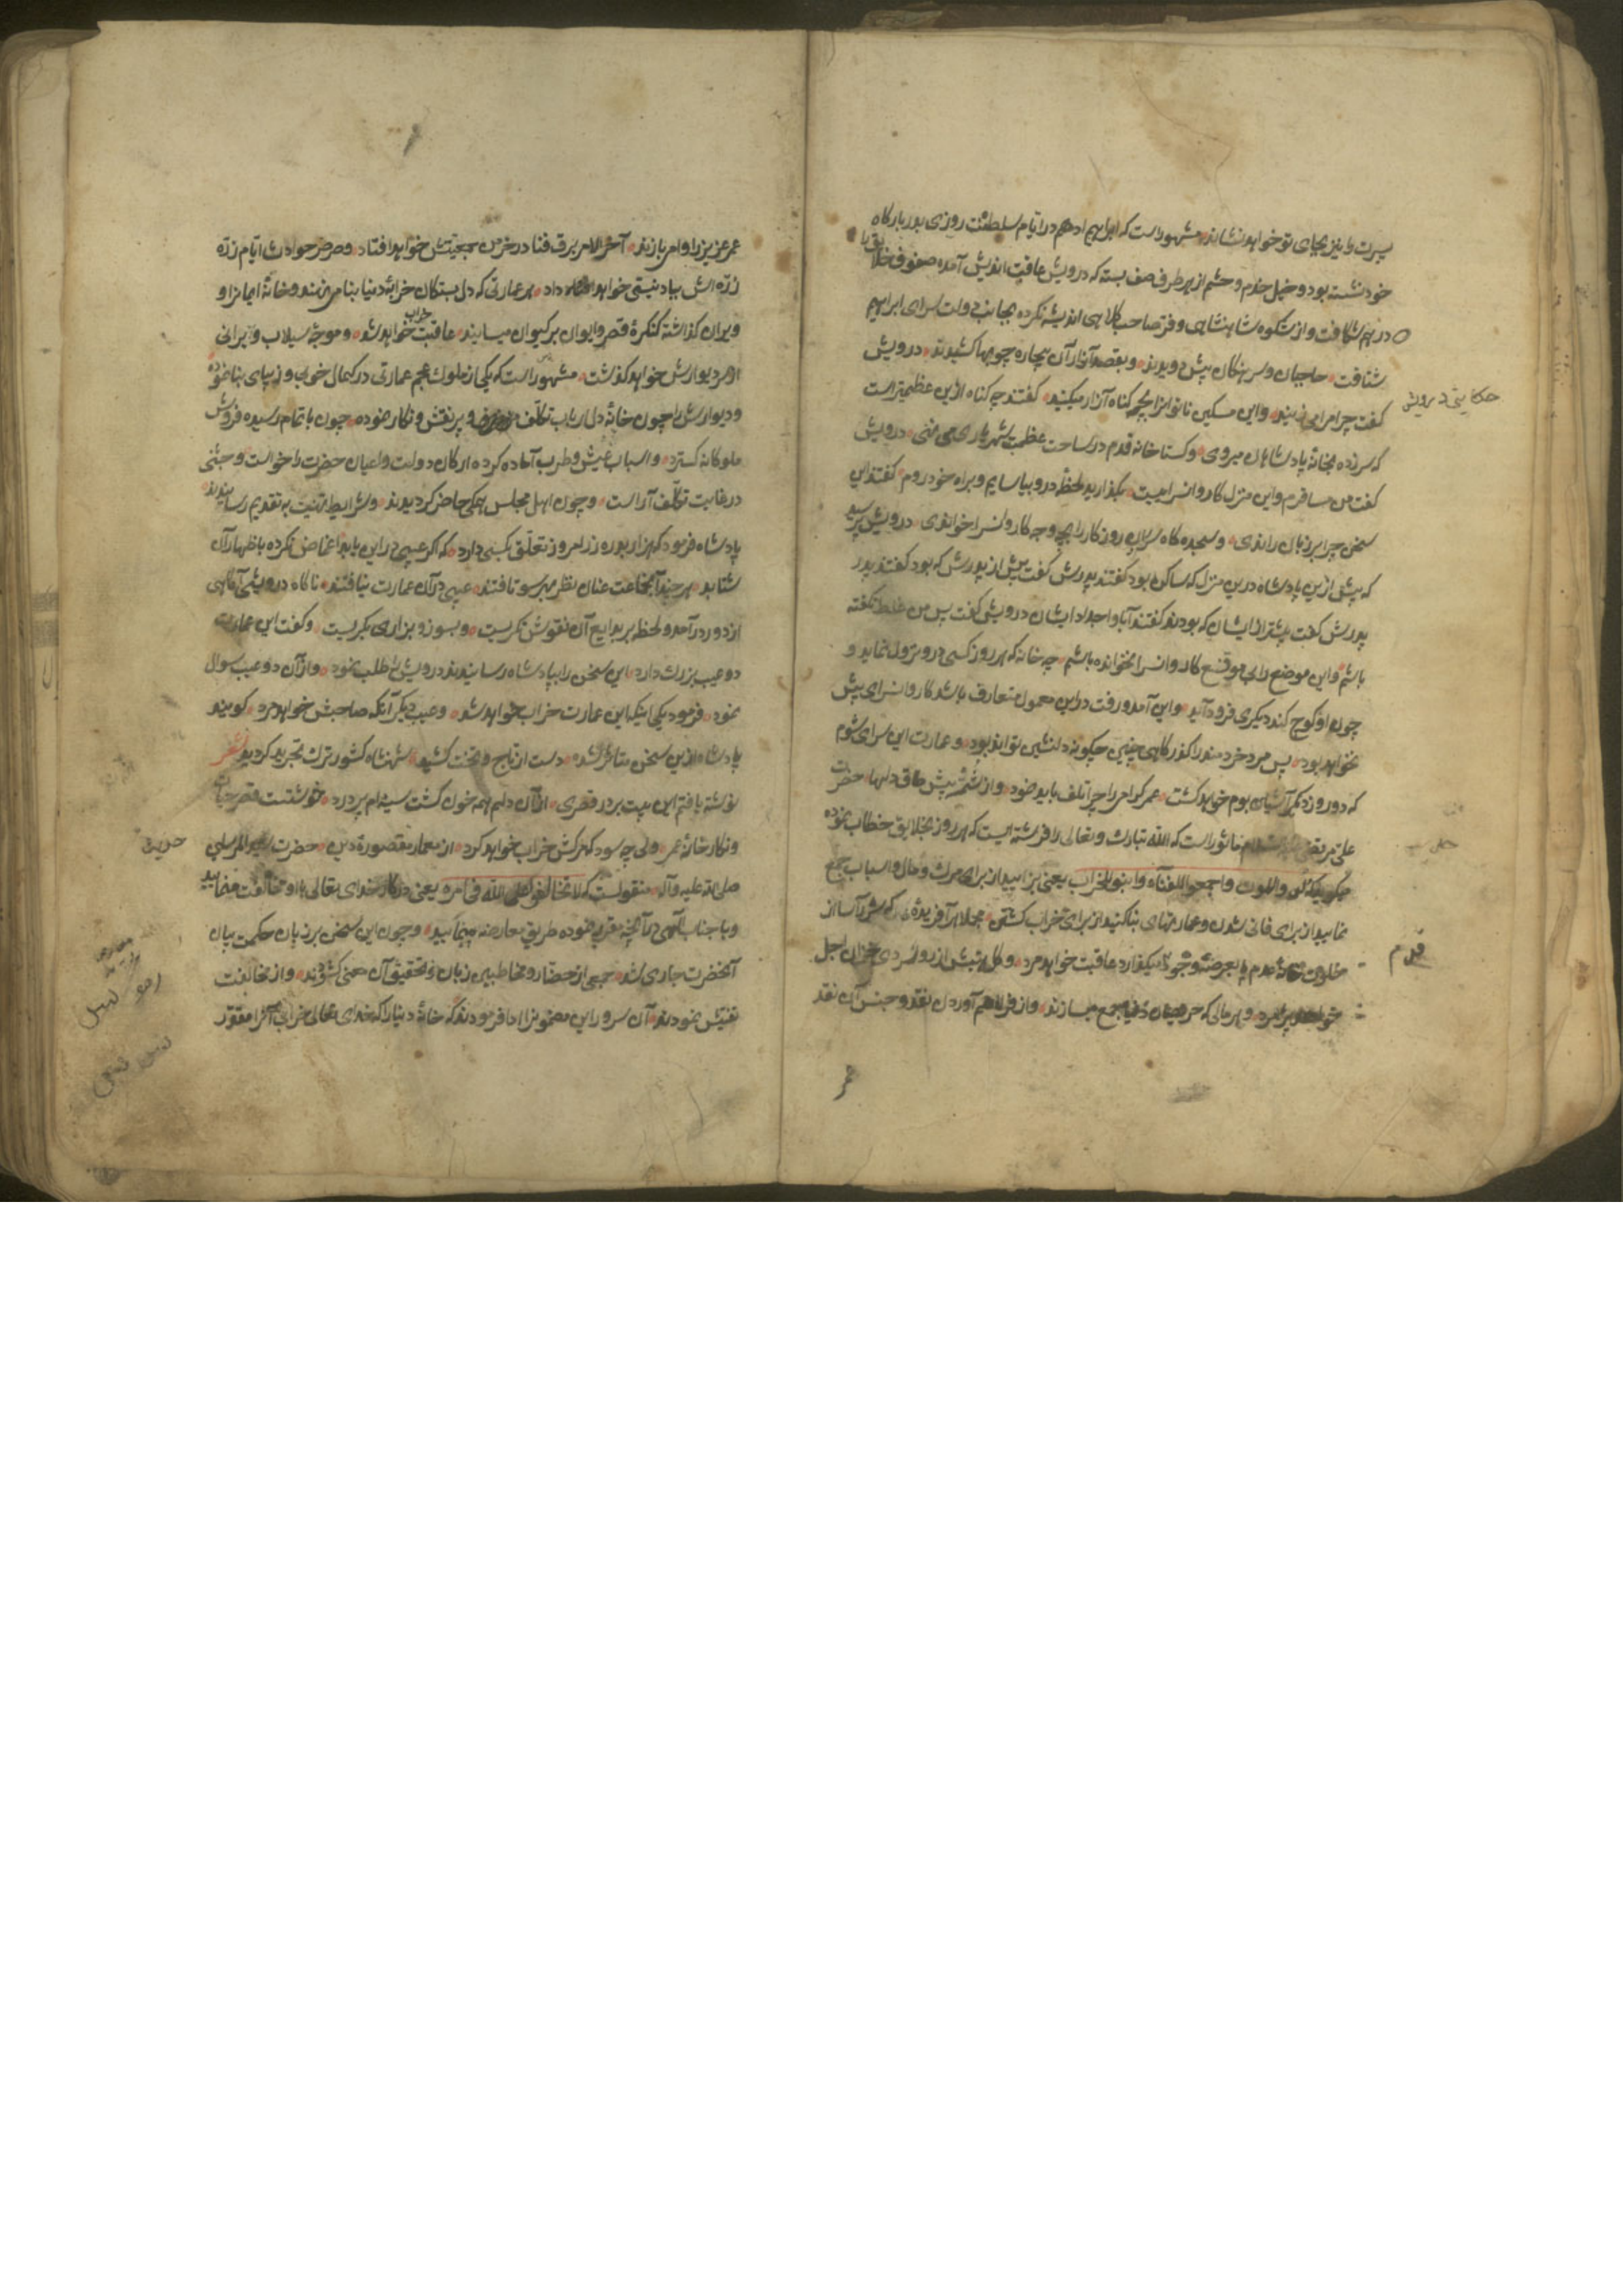 پسرت را نیز بجای تو خواهد نشاند مشهور است که ابراهیم ادهم در ایام سلطنت روزی بر دربارگاه
خود نشسته بود و خیل خدم و حشم از هر طرف صف بسته که درویش عاقبت اندیش آمده صفوف خلایق را
درهم شکافت و از شکوه شاهنشاهی و فر صاحب کلاهی اندیشه نکرده بجانب دولت سرای ابراهیم
شتافت حاجبان و سرهنگان پیش دویدند و بقصد آزار آن بیچاره چوبها کشیدند درویش
گفت چرا مرا میزنید و این مسکین ناتوانرا بچه گناه آزار میکنید گفتند چه گناه ازین عظیمتر است
که سرزده بخانهٔ پادشاهان میروی و گستاخانه قدم در ساحت عظمت شهریاری می نهی درویش
گفت من مسافرم و این منزل کاروانسراییست بگذارید لحظهٔ درو بیاسایم و براه خود روم گفتند این
سخن چرا بر زبان راندی و سجده گاه سران روزگار را بچه وجه کاروانسرا خواندی درویش پرسید
که پیش ازین پادشاه درین منزل که ساکن بود گفتند پدرش گفت پیش از پدرش که بود گفتند پدر
پدرش گفت پیشتر از ایشان که بودند گفتند آبا و اجداد ایشان درویش گفت پس من غلط نگفته
باشم و این موضع را بی موقع کاروانسرا نخوانده باشم چه خانه که هر روز کسی درو نزول نماید و
چون او کوچ کند دیگری فرود آید و این آمد و رفت در این معمول متعارف باشد کاروانسرای بیش
نخواهد بود پس مرد خردمند را گذرگاهی چنین چگونه دلنشین تواند بود و عمارت این سرای شوم
که دو روز دیگر آشیان بوم خواهد گشت عمر گرامی را چرا تلف باید نمود و از پیش طاق دلها حضرت
علی مرتضی علیه السلام ماثور است که الله تبارک و تعالی را فرشته ایست که هر روز بخلایق خطاب نموده
میگوید لدوا للموت و اجمعوا للفناء و ابنوا للخراب یعنی بزایید از برای مرگ و مال و اسباب جمع
نمایید از برای فانی شدن و عمارتهای بنا کنید از برای خراب گشتن مجملا هر آفریدهٔ که سر آسا از
خلوت خانهٔ عدم پا بعرصهٔ وجود میگذارد عاقبت خواهد مرد و گل هستیش از روانسردی خزان اجل
خواهد پژمرد و هر مالی که حریصان دنیا جمع میسازند و از فراهم آوردن نقد و جنس آن نقد
حکایتی درویش
قدم
عمر
عمر عزیز را وامی بازند آخر الامر برق فنا در خرمن جمعیتش خواهد افتاد و صرصر حوادث ایام ذره
ذره اش بباد نیستی خواهد داد هر عمارتی که دل بستگان خرابهٔ دنیا بنا می نهند و خانهٔ ایمانرا و
ویران گذاشته کنگرهٔ قصر و ایوان بر کیوان میسایند عاقبت خراب خواهد شد و موجهٔ سیلاب ویرانی
از سر دیوارش خواهد گذشت مشهور است که یکی از ملوک عجم عمارتی در کمال خوبی و زیبای بنا نموده
و دیوارش را چون خانهٔ دل ارباب تکلف و پر نقش و نگار نموده چون باتمام رسیده فروش
ملوکانه گسترد و اسباب عیش و طرب آماده کرده ارکان دولت و اعیان حضرت را خواست و جشنی
در غایت تکلف آراست و چون اهل مجلس همگی حاضر گردیدند و شرایط تهنیت به تقدیم رسانیدند
پادشاه فرمود که هزار بدره زر امروز تعلق بکسی دارد که اگر عیبی در این یابد اغماض نکرده باظهار آن
شتابد هر چند آنجماعت عنان نظر بهر سو تافتند عیبی در آن عمارت نیافتند ناگاه درویشی آگاهی
از در درآمد و لحظهٔ بر بدایع آن نقوش نگریست و بسوز و بزاری بگریست و گفت این عمارت
دو عیب بزرگ دارد این سخن را بپادشاه رسانیدند درویش را طلب نمود و از آن دو عیب سوال
نمود فرمود یکی اینکه این عمارت خراب خواهد شد و عیب دیگر آنکه صاحبش خواهد مرد گویند
پادشاه ازین سخن متاثر شده دست از تاج و تخت کشید شهنشاه کشور ترک تجرید گردید شعر
نوشته یافتم این بیت بر در قصری از آن دلم همه خون گشت سینه ام پر درد خوشتست قصر حیات
و نگارخانهٔ عمر ولی چه سود که مرگش خراب خواهد کرد از معمار مقصورهٔ دین حضرت سید المرسلین
صلی الله علیه و آله منقولست که لا تخالفوا علی الله فی امره یعنی در کار خدای تعالی با او مخالفت منمایید
و با جناب الهی در آنچه مقرر نموده طریق معارضه مپیمایید و چون این سخن بر زبان حکمت بیان
آنحضرت جاری شد جمعی از حضار و مخاطبین زبان تحقیق آن معنی گشودند و از مخالفت
تفتیش نمودند آن سرور این مضمونرا ادا فرمودند که خانهٔ دنیا را که خدای تعالی خرابی آنرا مقرر
حدیث